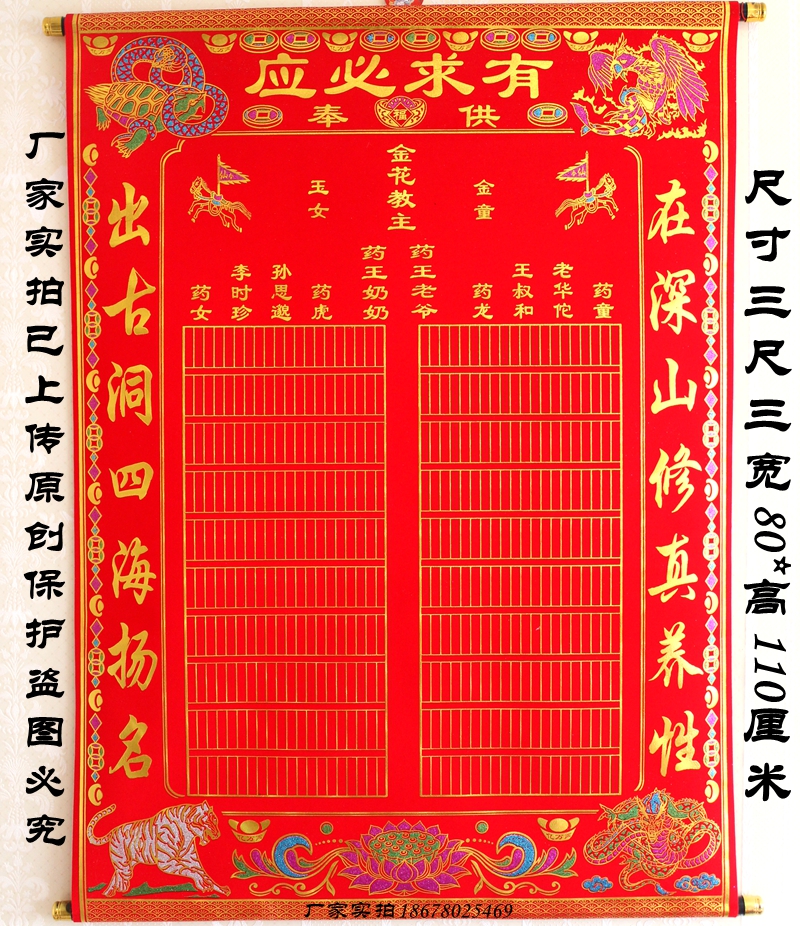 有求必应
供奉
福
在深山修真养性
出古洞四海扬名
金花教主
金童
玉女
药王老爷
药王奶奶
药童
老华佗
王叔和
药龙
药虎
孙思邈
李时珍
药女
尺寸三尺三宽80*高110厘米
厂家实拍已上传原创保护盗图必究
厂家实拍18678025469